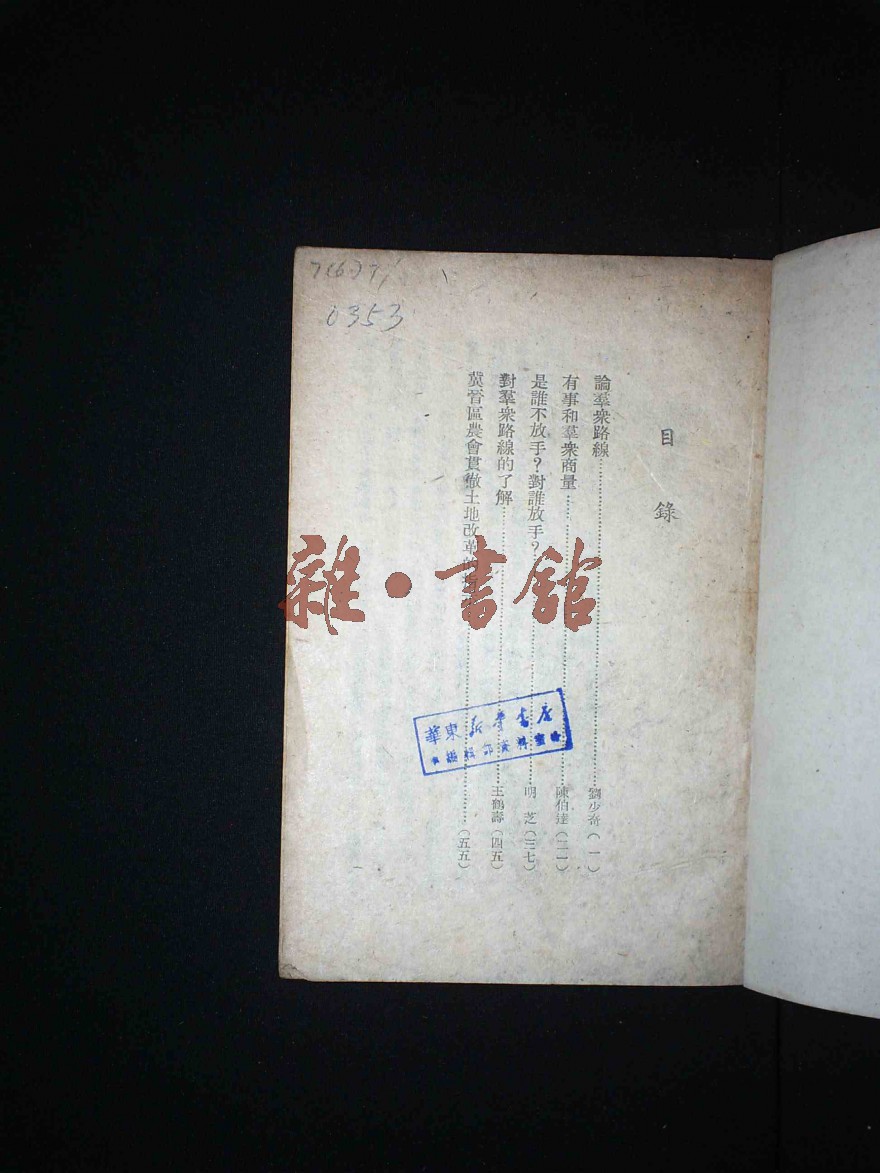 0353
目錄
論羣衆路線……劉少奇(一)
有事和羣衆商量……陳伯達(二一)
是誰不放手?對誰放手?……明 芝(三七)
對羣衆路線的了解……王鶴壽(四五)
冀晉區農會貫徹土地改革……(五五)
雜·書館
華東新華書店
編輯部資料室